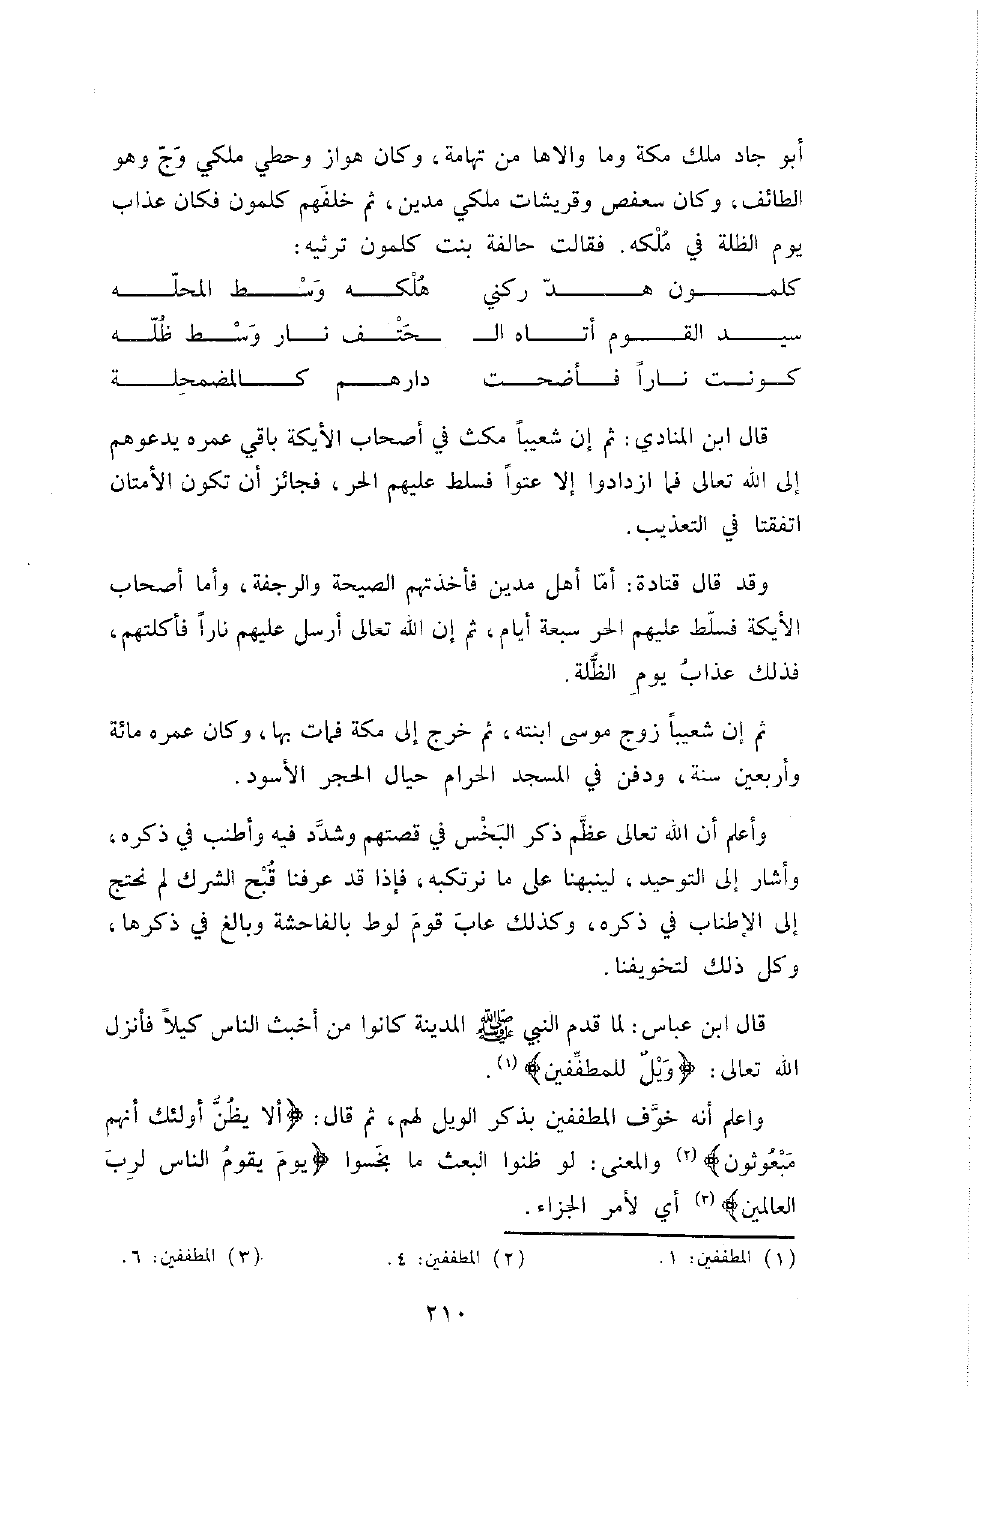 أبو جاد ملك مكة وما والاها من تهامة، وكان هواز وحطي ملكي وَجّ وهو
الطائف، وكان سعفص وقريشات ملكي مدين، ثم خلفَهم كلمون فكان عذاب
يوم الظلة في مُلْكه. فقالت حالفة بنت كلمون ترثيه:
كلمــــون هــــدّ ركني هُلْكــــه وَسْــــط المحلّــــه
سيــــد القــــوم أتــــاه الــ ــحَتْــــف نــــار وَسْــــط ظُلّــــه
كــونــت نــاراً فــأضحــت دارهــــم كــــالمضمحلــــة
قال ابن المنادي: ثم إن شعيباً مكث في أصحاب الأيكة باقي عمره يدعوهم
إلى الله تعالى فما ازدادوا إلا عتواً فسلط عليهم الحر، فجائز أن تكون الأمتان
اتفقتا في التعذيب.
وقد قال قتادة: أمّا أهل مدين فأخذتهم الصيحة والرجفة، وأما أصحاب
الأيكة فسلّط عليهم الحر سبعة أيام، ثم إن الله تعالى أرسل عليهم ناراً فأكلتهم،
فذلك عذابُ يومِ الظُّلة.
ثم إن شعيباً زوج موسى ابنته، ثم خرج إلى مكة فمات بها، وكان عمره مائة
وأربعين سنة، ودفن في المسجد الحرام حيال الحجر الأسود.
وأعلم أن الله تعالى عظَّم ذكر البَخْس في قصتهم وشدَّد فيه وأطنب في ذكره،
وأشار إلى التوحيد، لينبهنا على ما نرتكبه، فإذا قد عرفنا قُبْح الشرك لم نحتج
إلى الإطناب في ذكره، وكذلك عابَ قومَ لوط بالفاحشة وبالغ في ذكرها،
وكل ذلك لتخويفنا.
قال ابن عباس: لما قدم النبي ﷺ المدينة كانوا من أخبث الناس كيلاً فأنزل
الله تعالى: ﴿وَيْلٌ للمطفِّفين﴾(١).
واعلم أنه خوَّف المطففين بذكر الويل لهم، ثم قال: ﴿ألا يظُنُّ أولئك أنهم
مَبْعُوثون﴾(٢) والمعنى: لو ظنوا البعث ما بخَسوا ﴿يومَ يقومُ الناس لربِّ
العالمين﴾(٣) أي لأمر الجزاء.
(١) المطففين: ١. (٢) المطففين: ٤. (٣) المطففين: ٦.
٢١٠